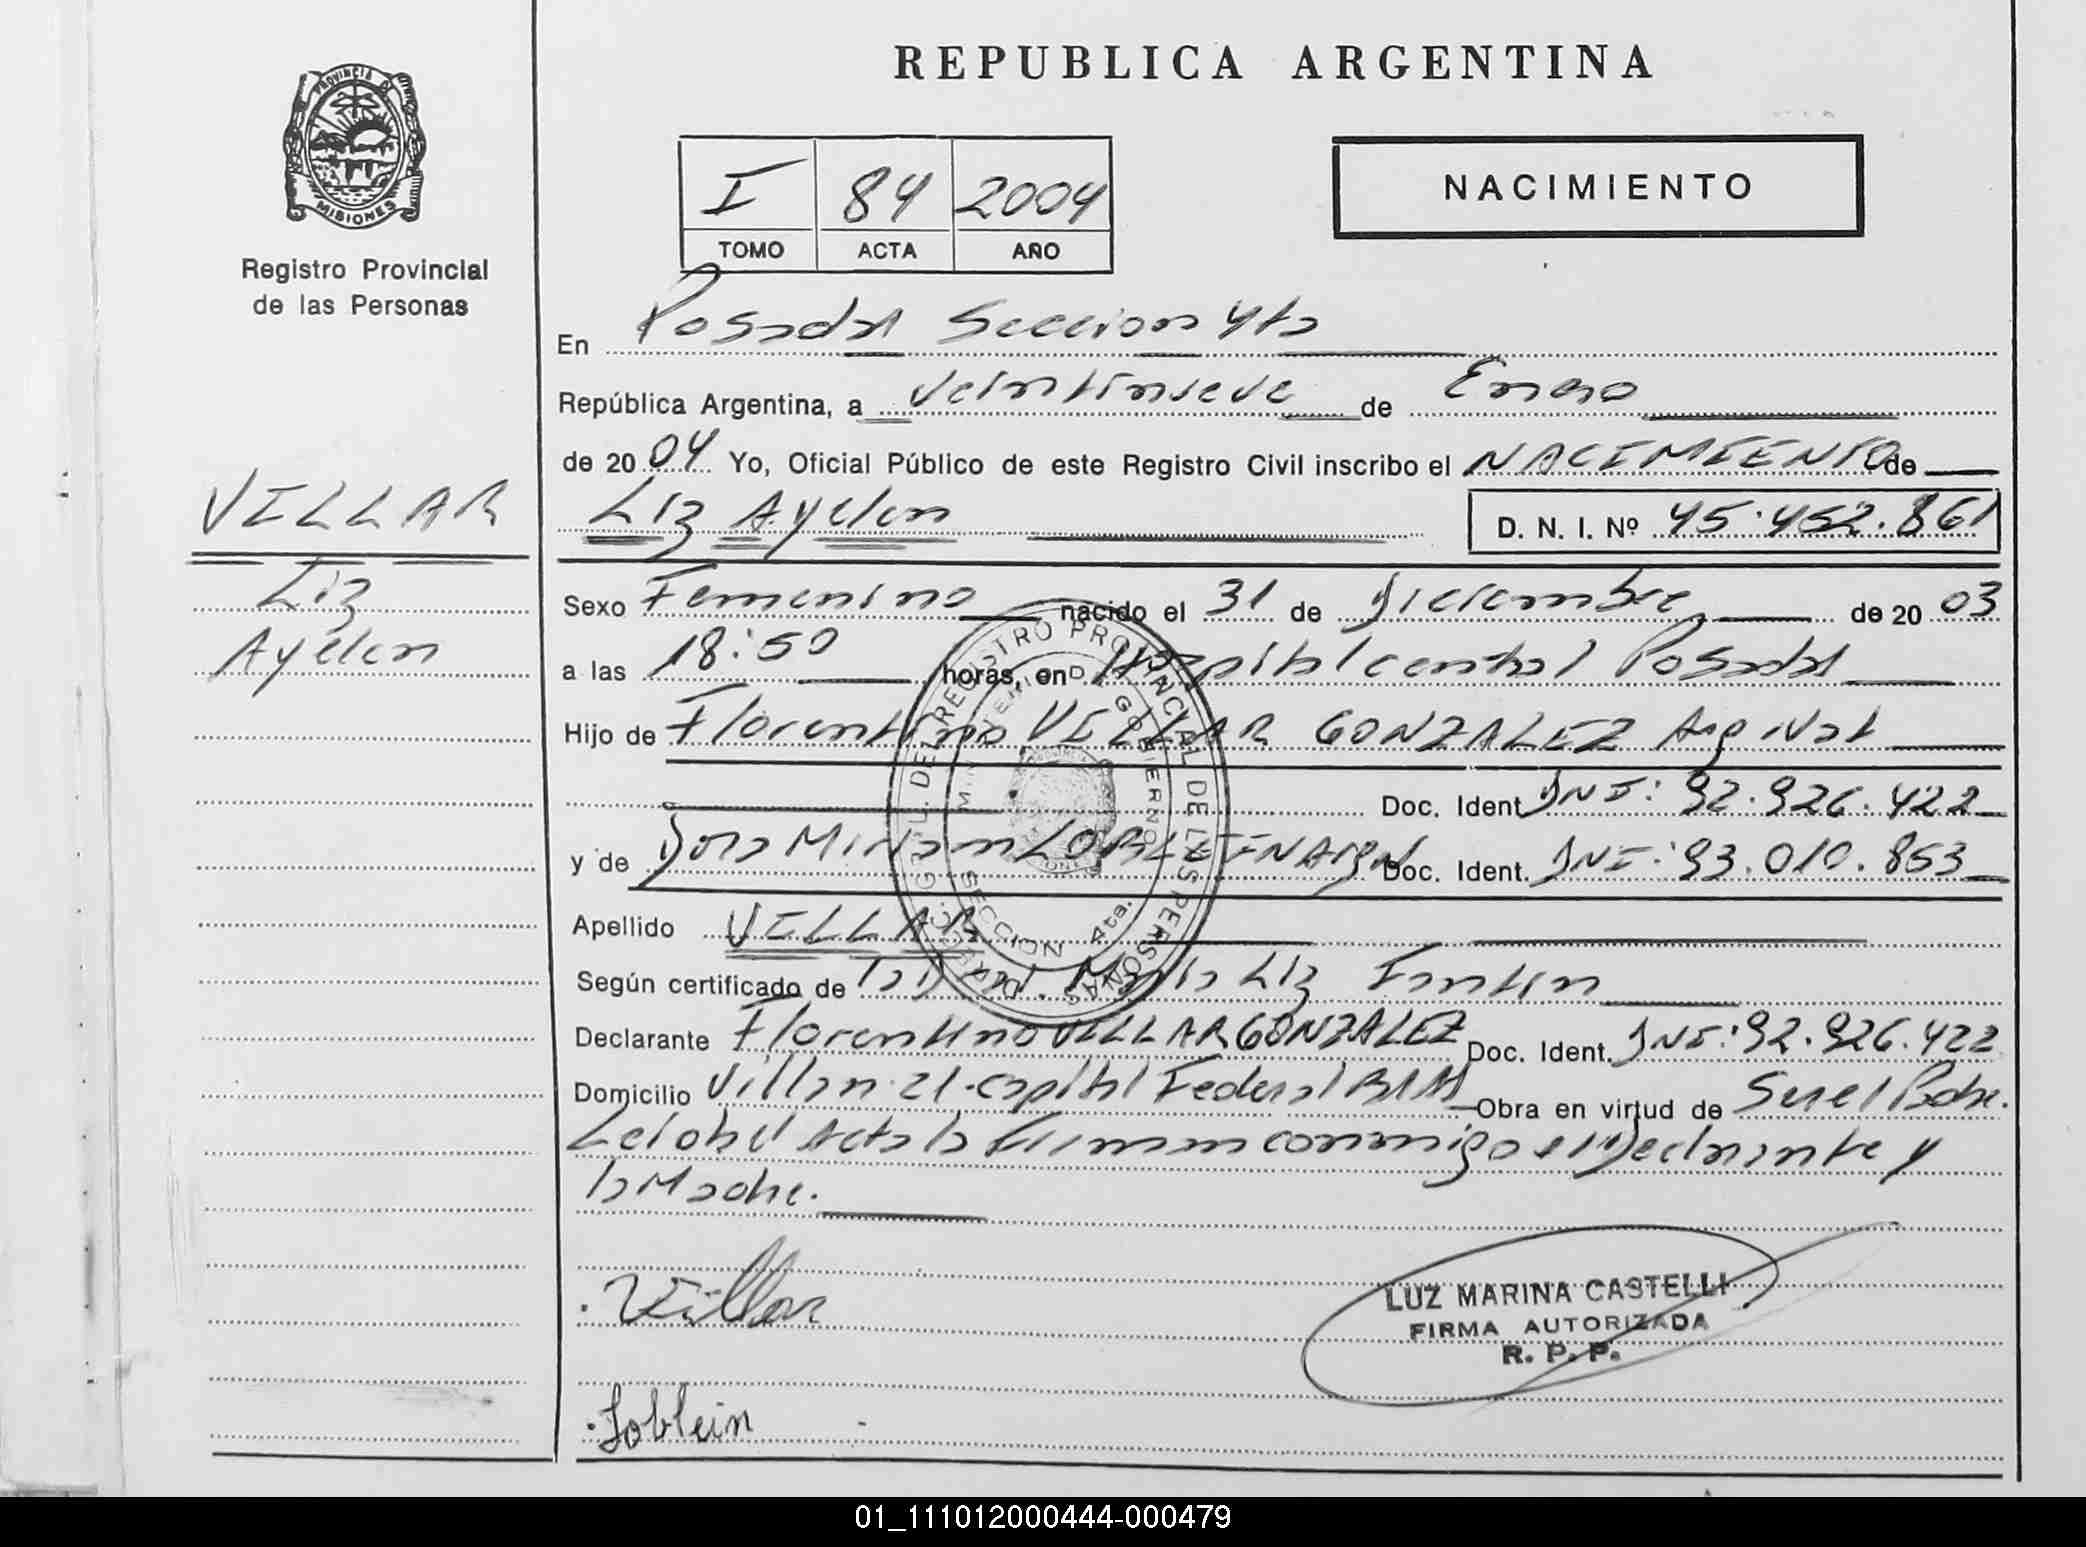 REPUBLICA ARGENTINA
PROVINCIA DE
MISIONES
Registro Provincial
de las Personas
I 84 2004
TOMO ACTA AÑO
NACIMIENTO
En Posadas Seccion 4ta
República Argentina, a veintinueve de Enero
de 2004 Yo, Oficial Público de este Registro Civil inscribo el NACIMIENTO de
VILLAR
Liz Ayelen
D. N. I. Nº 45.452.861
Liz
Ayelen
Sexo Femenino nacido el 31 de Diciembre de 2003
a las 18:50 horas, en Hospital central Posadas
Hijo de Florentino VILLAR GONZALEZ
Doc. Ident. DNI: 92.926.422
y de Dora Miriam Doc. Ident. DNI: 93.010.853
Apellido VILLAR
Según certificado de Maria Liz
Declarante Florentino VILLAR GONZALEZ Doc. Ident. DNI: 92.926.422
Domicilio Villa 21. Capital Federal Obra en virtud de Ser el Padre.
Leida el Acta la Firman conmigo el Declarante y
la Madre.
DIRECC. GRAL. DEL REGISTRO PROVINCIAL DE LAS PERSONAS
SECCION 4ta.
Villar
LUZ MARINA CASTELLI
FIRMA AUTORIZADA
R. P. P.
Loblein
01_111012000444-000479